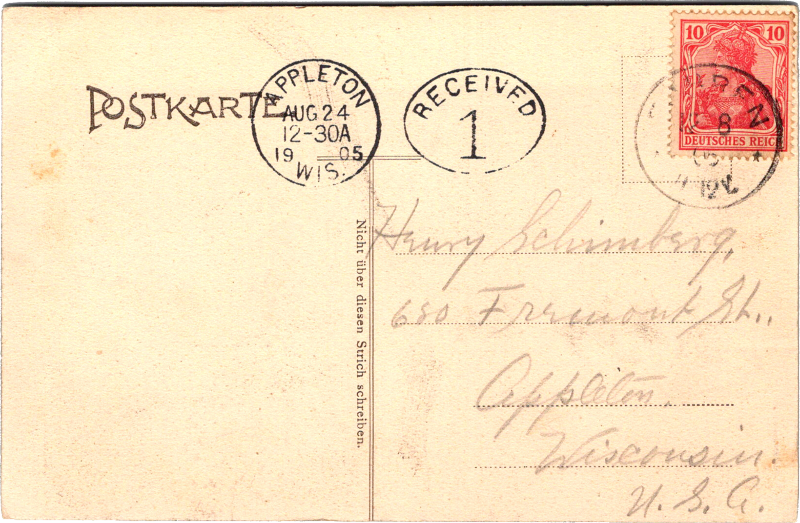 POSTKARTE
APPLETON
AUG 24
12-30A
19 05
WIS.
RECEIVED
1
10 10
DEUTSCHES REICH
8
12 V.
Nicht über diesen Strich schreiben.
Henry Schimberg,
680 Fremont St.,
Appleton,
Wisconsin.
U. S. A.